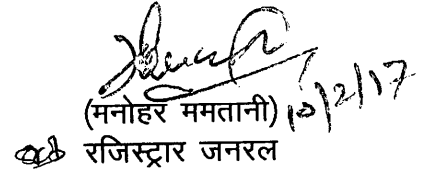 (मनोहर ममतानी) 10/2/17
रजिस्ट्रार जनरल